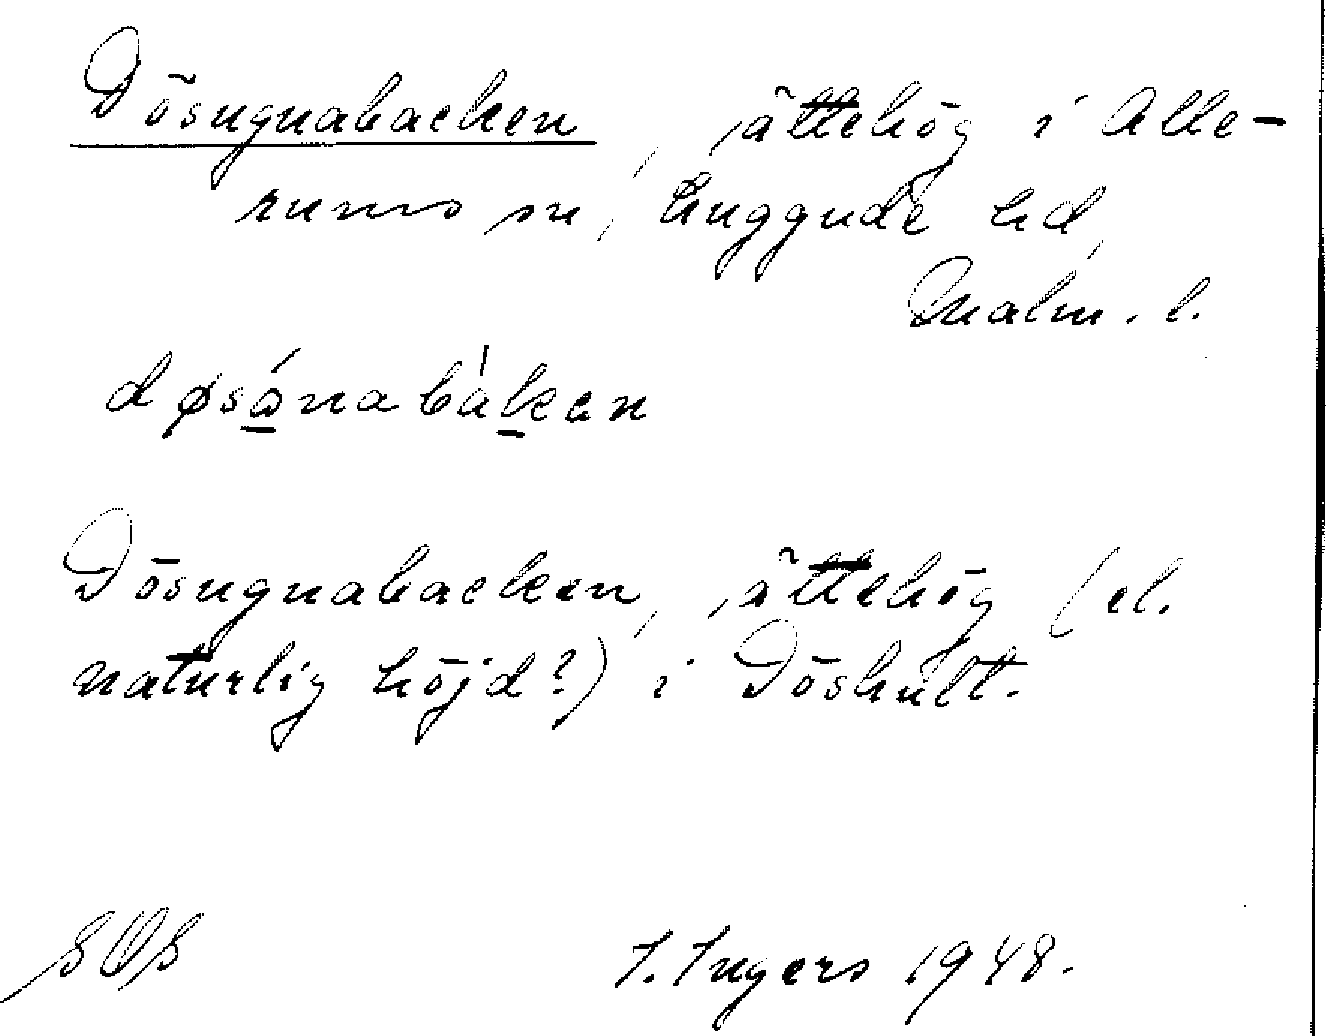 Dösugnabacken, ättehög i Alle-
rums sn, Luggude hd,
Malm. l.
døsánabàken
Dösugnabacken, ättehög (el.
naturlig höjd?) i Döshult.
SOS I. Ingers 1948.